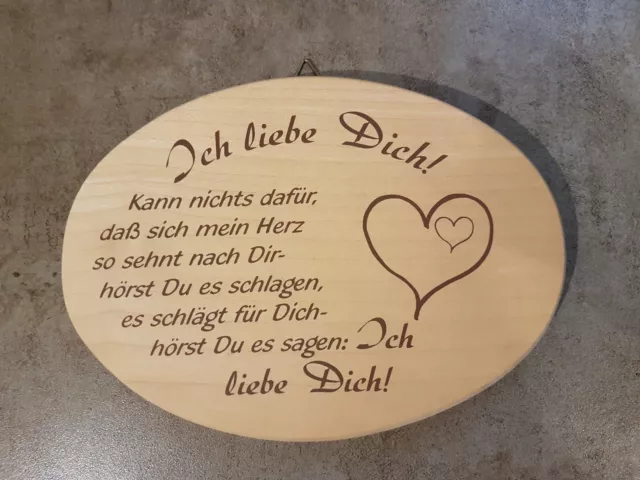 Ich liebe Dich!
Kann nichts dafür,
daß sich mein Herz
so sehnt nach Dir-
hörst Du es schlagen,
es schlägt für Dich-
hörst Du es sagen: Ich
liebe Dich!